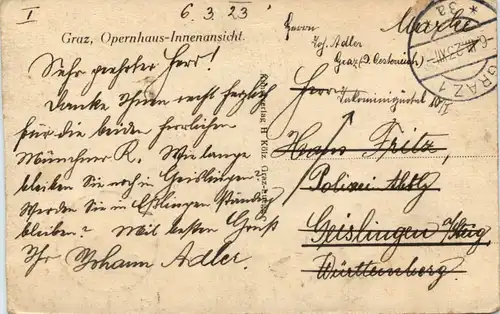 I
6.3.23
Graz, Opernhaus-Innenansicht.
Sehr geehrter Herr!
Danke Ihnen recht herzlich
für die beiden herrlichen
Münchner R. Wie lange
bleiben Sie noch in Geislingen?
Werden Sie in Esslingen ständig
bleiben? Mit besten Gruß
Ihr Johann Adler.
H Kölz, Graz
Herrn
Marke
Joh. Adler
Graz (D. Oesterreich)
Herrn
Hans Fritz,
Polizei
Geislingen a/Steig,
Württemberg.
3a
GRAZ 1